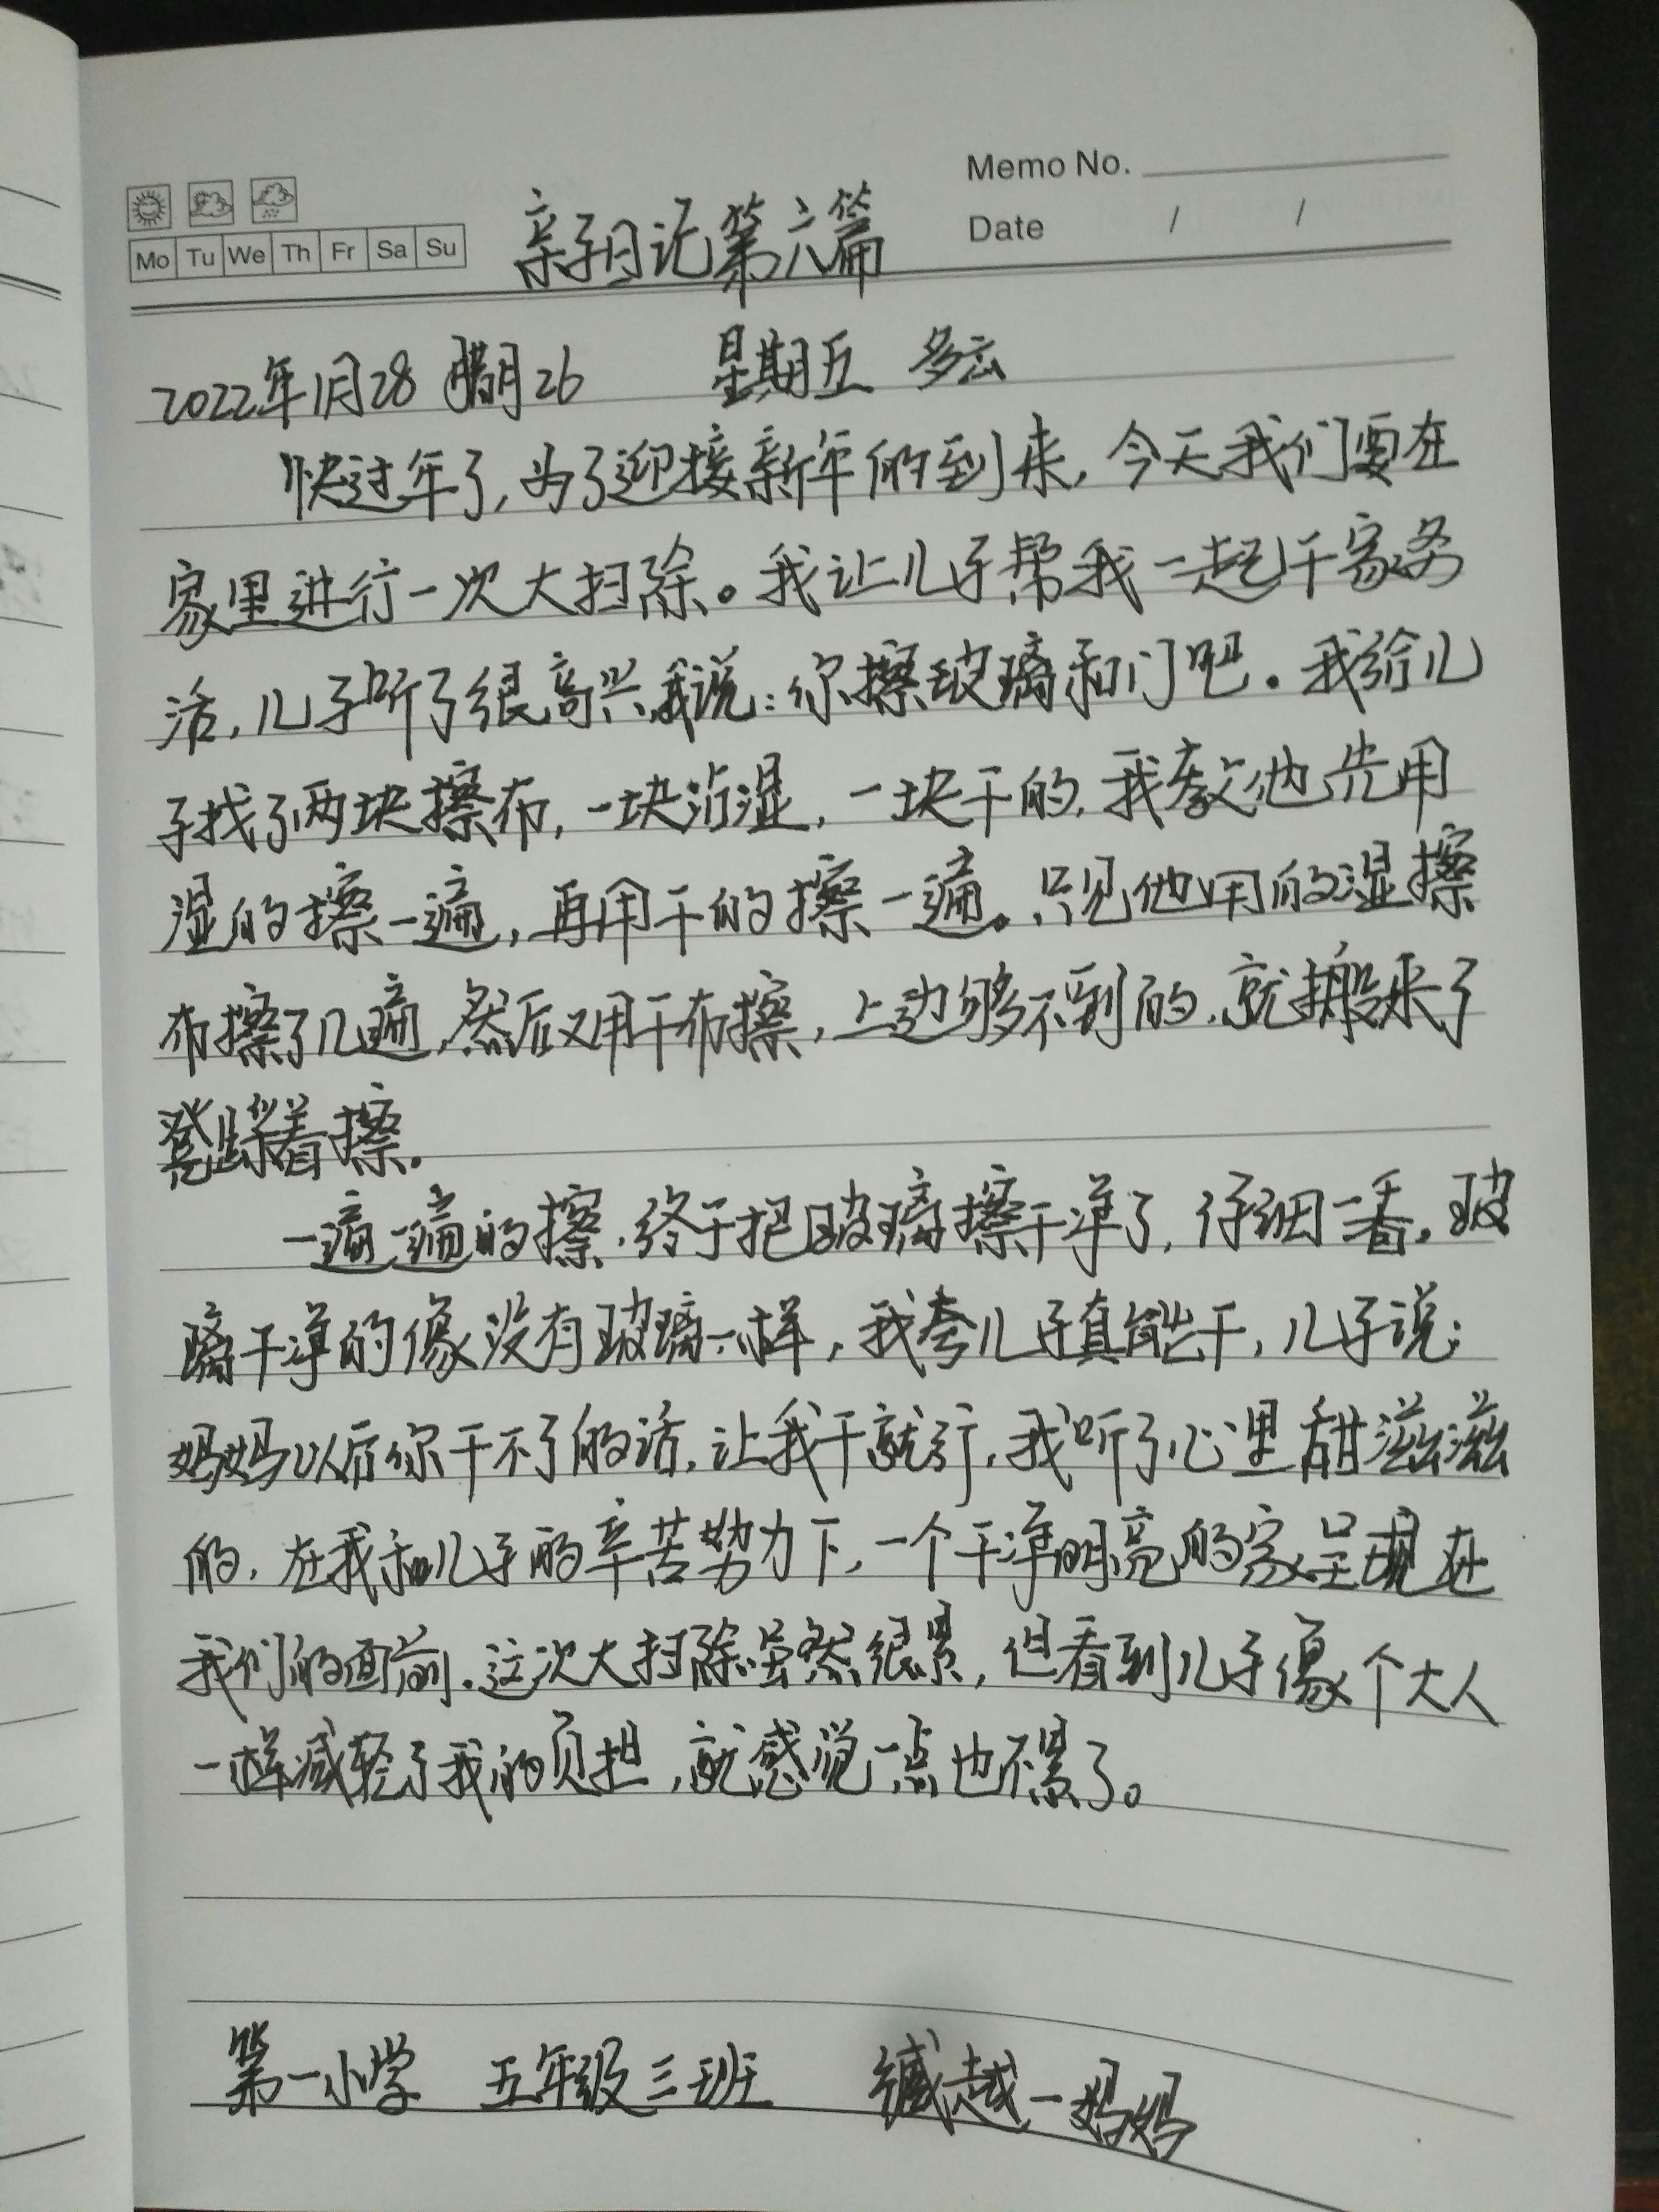 Memo No.
Date / /
Mo Tu We Th Fr Sa Su
亲子日记第六篇
2022年1月28 腊月26 星期五 多云
快过年了,为了迎接新年的到来,今天我们要在
家里进行一次大扫除。我让儿子帮我一起干家务
活,儿子听了很高兴,我说:你擦玻璃和门吧。我给儿
子找了两块擦布,一块沾湿,一块干的,我教他先用
湿的擦一遍,再用干的擦一遍。只见他用的湿擦
布擦了几遍,然后又用干布擦,上边够不到的,就搬来了
凳踩着擦.
一遍一遍的擦,终于把玻璃擦干净了,仔细一看,玻
璃干净的像没有玻璃一样,我夸儿子真能干,儿子说:
妈妈以后你干不了的活,让我干就行,我听了心里甜滋滋
的,在我和儿子的辛苦努力下,一个干净明亮的家呈现在
我们的面前.这次大扫除虽然很累,但看到儿子像个大人
一样减轻了我的负担,就感觉一点也不累了。
第一小学 五年级三班 臧越一妈妈